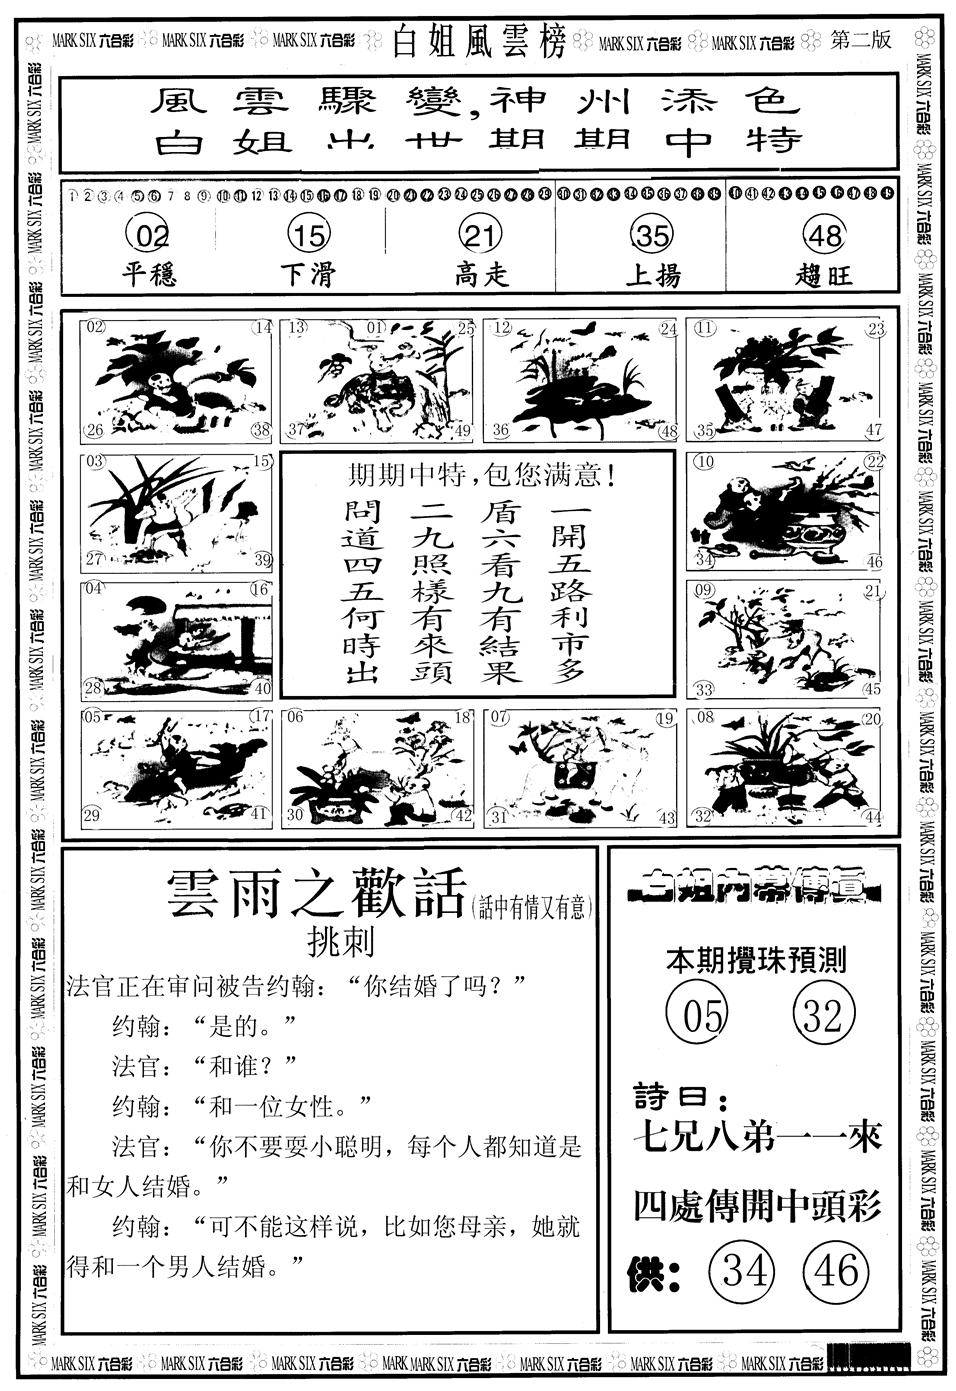 MARK SIX 六合彩 MARK SIX 六合彩 MARK SIX 六合彩 白姐風雲榜 MARK SIX 六合彩 MARK SIX 六合彩 第二版
風雲驟變,神州添色
白姐出世期期中特
1 2 3 4 5 6 7 8 9 10 11 12 13 14 15 16 17 18 19 20 21 22 23 24 25 26 27 28 29 30 31 32 33 34 35 36 37 38 39 40 41 42 43 44 45 46 47 48 49
02 15 21 35 48
平穩 下滑 高走 上揚 趨旺
02 14 13 01 25 12 24 11 23
26 38 37 49 36 48 35 47
03 15 10 22
27 39 34 46
04 16 09 21
28 40 33 45
期期中特,包您满意!
一開五路利市多
盾六看九有結果
二九照樣有來頭
問道四五何時出
05 17 06 18 07 19 08 20
29 41 30 42 31 43 32 44
雲雨之歡話(話中有情又有意)
挑刺
法官正在审问被告约翰：“你结婚了吗？”
约翰：“是的。”
法官：“和谁？”
约翰：“和一位女性。”
法官：“你不要耍小聪明，每个人都知道是
和女人结婚。”
约翰：“可不能这样说，比如您母亲，她就
得和一个男人结婚。”
白姐内幕傳真
本期攪珠預測
05 32
詩曰：
七兄八弟一一來
四處傳開中頭彩
供： 34 46
MARK SIX 六合彩 MARK SIX 六合彩 MARK SIX 六合彩 MARK MARK SIX 六合彩 MARK SIX 六合彩 MARK SIX 六合彩 MARK SIX 六合彩